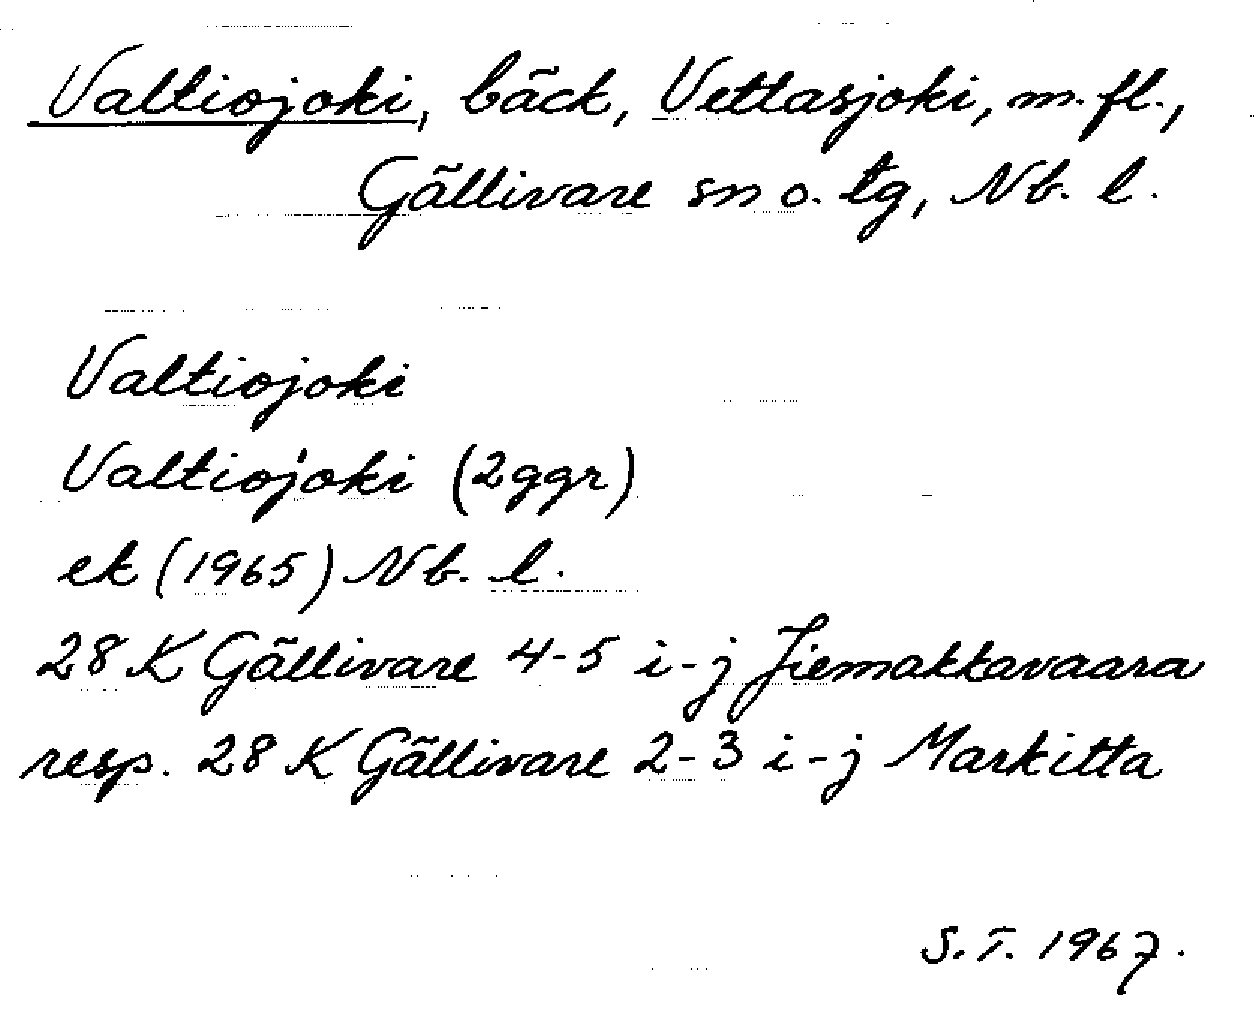 Valtiojoki, bäck, Vettasjoki, m. fl.,
Gällivare sn o. tg, Nb. l.
Valtiojoki
Valtiojoki (2ggr)
ek (1965) Nb. l.
28 K Gällivare 4-5 i-j Jiemakkavaara
resp. 28 K Gällivare 2-3 i-j Markitta
S.T. 1967.